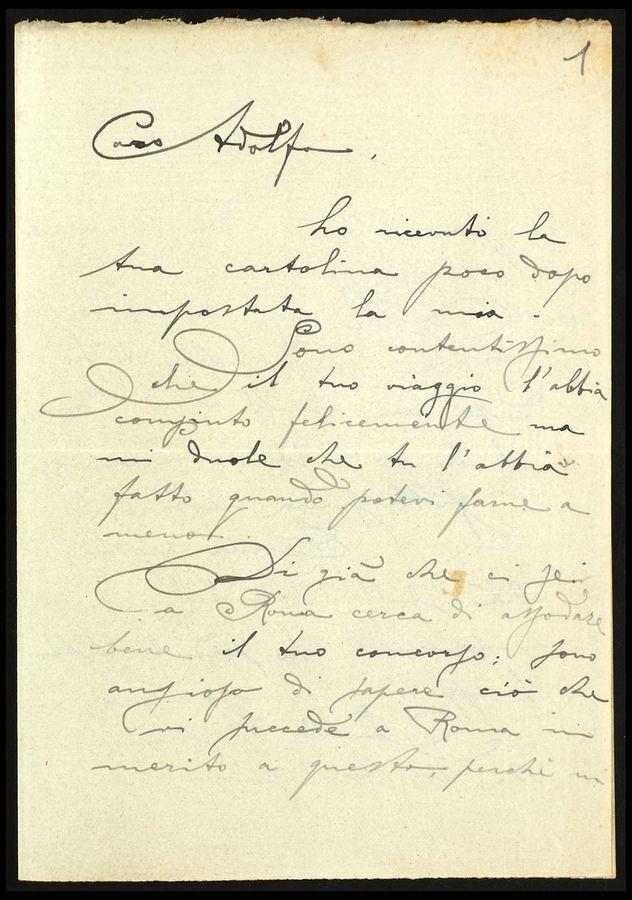 1
Caro Adolfo,
ho ricevuto la
tua cartolina poco dopo
impostata la mia.
Sono contentissimo
che il tuo viaggio l'abbia
compiuto felicemente ma
mi duole che tu l'abbia
fatto quando potevi farne a
meno.
Di già che ci sei
a Roma cerca di assodare
bene il tuo concorso; sono
ansioso di sapere ciò che
vi succede a Roma in
merito a questo, perchè mi